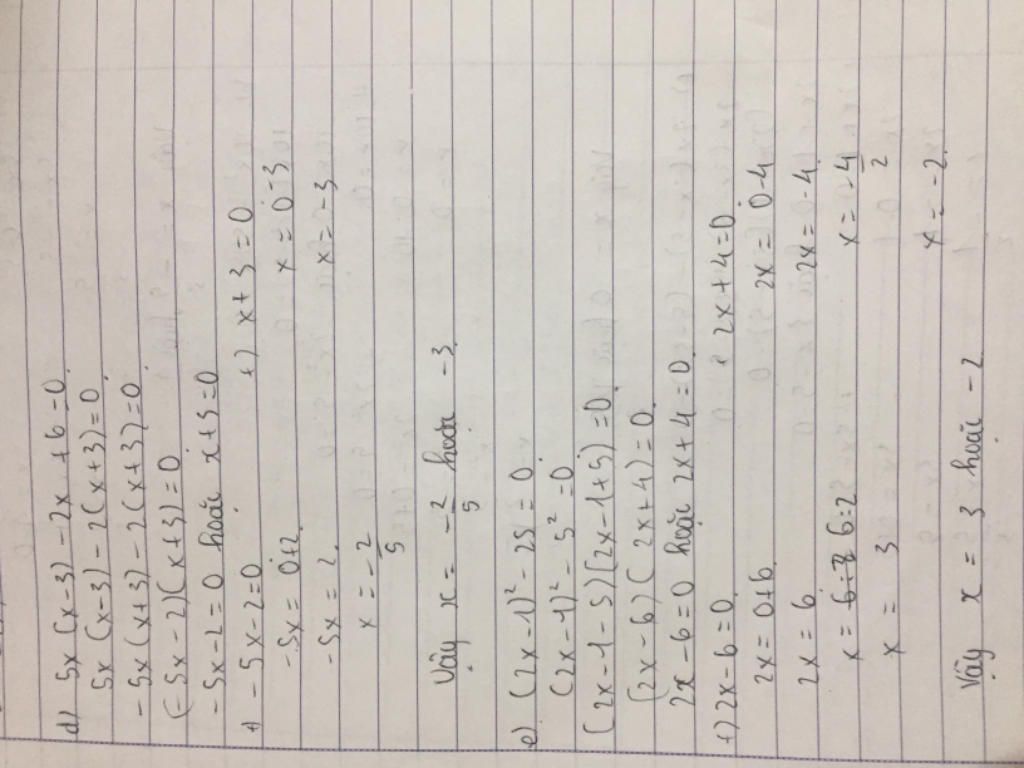 d) 5x (x-3) - 2x + 6 = 0
5x (x-3) - 2(x+3) = 0
- 5x(x+3) - 2(x+3) = 0
(-5x-2)(x+3) = 0
- 5x-2 = 0 hoặc x+3 = 0
+) - 5x-2=0 +) x+3=0
-5x = 0+2 x = 0-3
-5x = 2 x = -3
x = -2/5
Vậy x = -2/5 hoặc -3
e) (2x-1)² - 25 = 0
(2x-1)² - 5² = 0
(2x-1-5)(2x-1+5) = 0
(2x-6)(2x+4) = 0
2x-6=0 hoặc 2x+4=0
+) 2x-6=0 2x+4=0
2x = 0+6 2x = 0-4
2x = 6 2x = 0-4
x = 6:2 x = -4/2
x = 3 x = -2
Vậy x = 3 hoặc -2